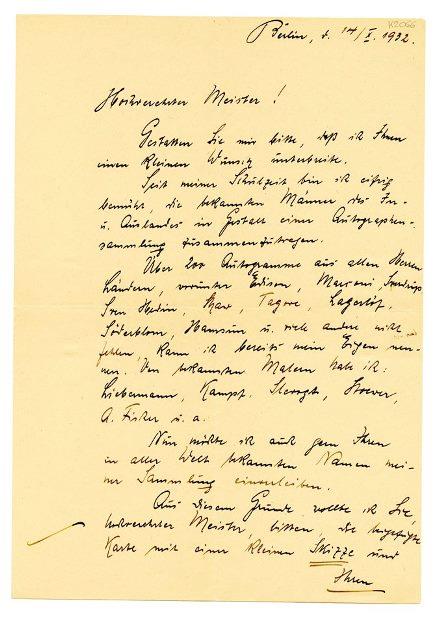 K2066
Berlin, d. 14/I. 1932.
Hochverehrter Meister!
Gestatten Sie mir bitte, daß ich Ihnen
einen kleinen Wunsch unterbreite.
Seit meiner Schulzeit bin ich eifrig
bemüht, die bekannten Männer des In-
u. Auslandes in Gestalt einer Autographen-
sammlung zusammenzutragen.
Über 200 Autogramme aus allen Herren
Ländern, worunter Edison, Marconi,
Sven Hedin, Shaw, Tagore, Lagerlöf,
Söderblom, Hamsun u. viele andere nicht
fehlen, kann ich bereits mein Eigen nen-
nen. Von bekannten Malern habe ich:
Liebermann, Kampf, Slevogt, Stoewer,
A. Fischer u. a.
Nun möchte ich auch gern Ihren
in aller Welt bekannten Namen mei-
ner Sammlung einverleiben.
Aus diesem Grunde wollte ich Sie,
hochverehrter Meister, bitten, die beigefügte
Karte mit einer kleinen Skizze und
Ihren